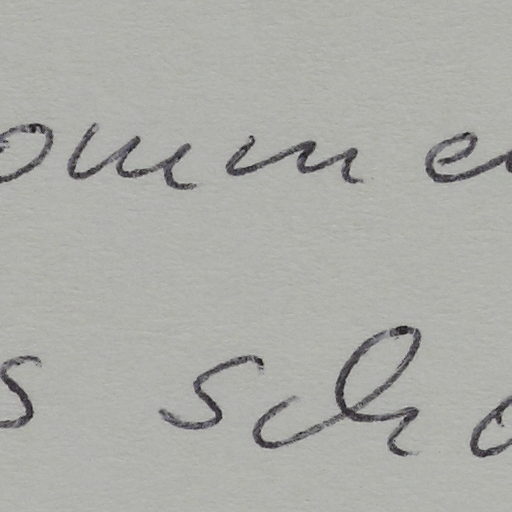 ommen
s scho